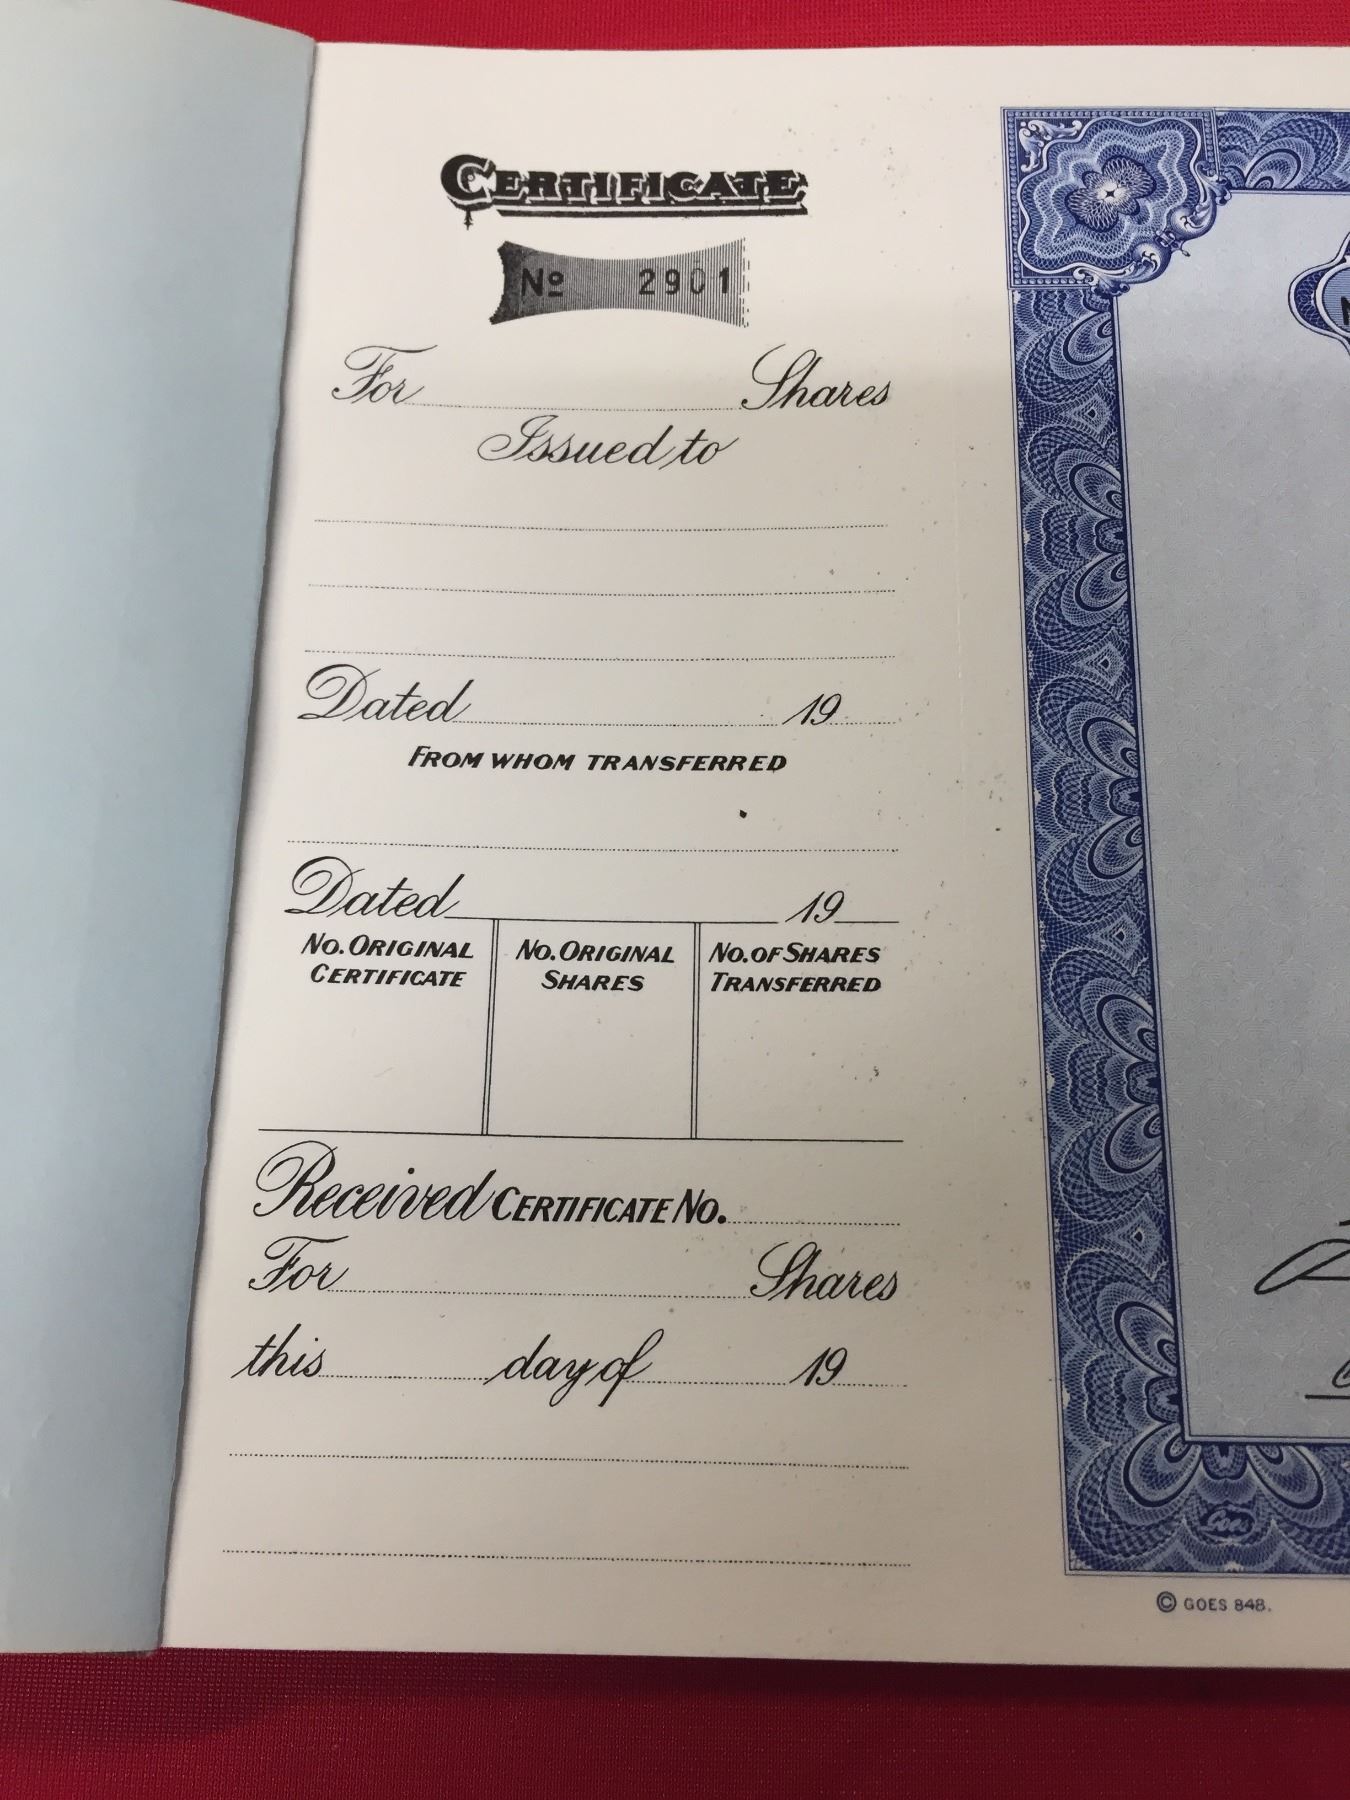 CERTIFICATE
No 2901
For Shares
Issued to
Dated 19
FROM WHOM TRANSFERRED
Dated 19
NO. ORIGINAL CERTIFICATE
NO. ORIGINAL SHARES
NO. OF SHARES TRANSFERRED
Received CERTIFICATE NO.
For Shares
this day of 19
Goes
© GOES 848.